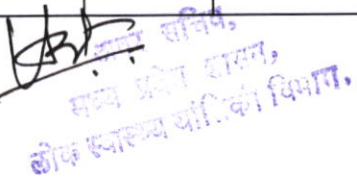 सचिव,
मध्य प्रदेश शासन,
लोक स्वास्थ्य यांत्रिकी विभाग.